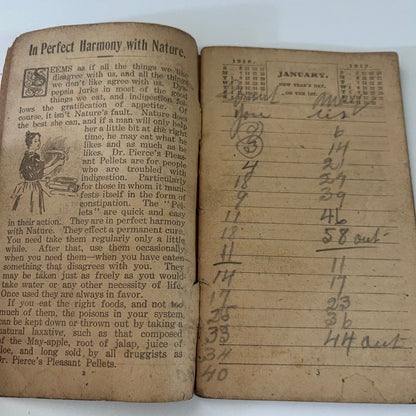 In Perfect Harmony with Nature.
SEEMS as if all the things we like
disagree with us, and all the things
we don't like agree with us. Dys-
pepsia lurks in most of the good
things we eat, and indigestion fol-
lows the gratification of appetite. Of
course, it isn't Nature's fault. Nature does
the best she can, and if a man will only help
her a little bit at the right
time, he may eat what he
likes and as much as he
likes. Dr. Pierce's Pleas-
ant Pellets are for people
who are troubled with
indigestion. Particularly
for those in whom it mani-
fests itself in the form of
constipation. The "Pel-
lets" are quick and easy
in their action. They are in perfect harmony
with Nature. They effect a permanent cure.
You need take them regularly only a little
while. After that, use them occasionally
when you need them—when you have eaten
something that disagrees with you. They
may be taken just as freely as you would
take water or any other necessity of life.
Once used they are always in favor.
If you eat the right foods, and not too
much of them, the poisons in your system
can be kept down or thrown out by taking a
natural laxative, such as that composed
of the May-apple, root of jalap, juice of
aloe, and long sold by all druggists as
Dr. Pierce's Pleasant Pellets.
2
JANUARY.
NEW YEAR'S DAY,
ON THE 1ST.
you us
2 6
3 14
4 21
18 29
9 39
11 46
18 58 out
11 11
14 17
17 23
26 36
33 44 out
34
40
3